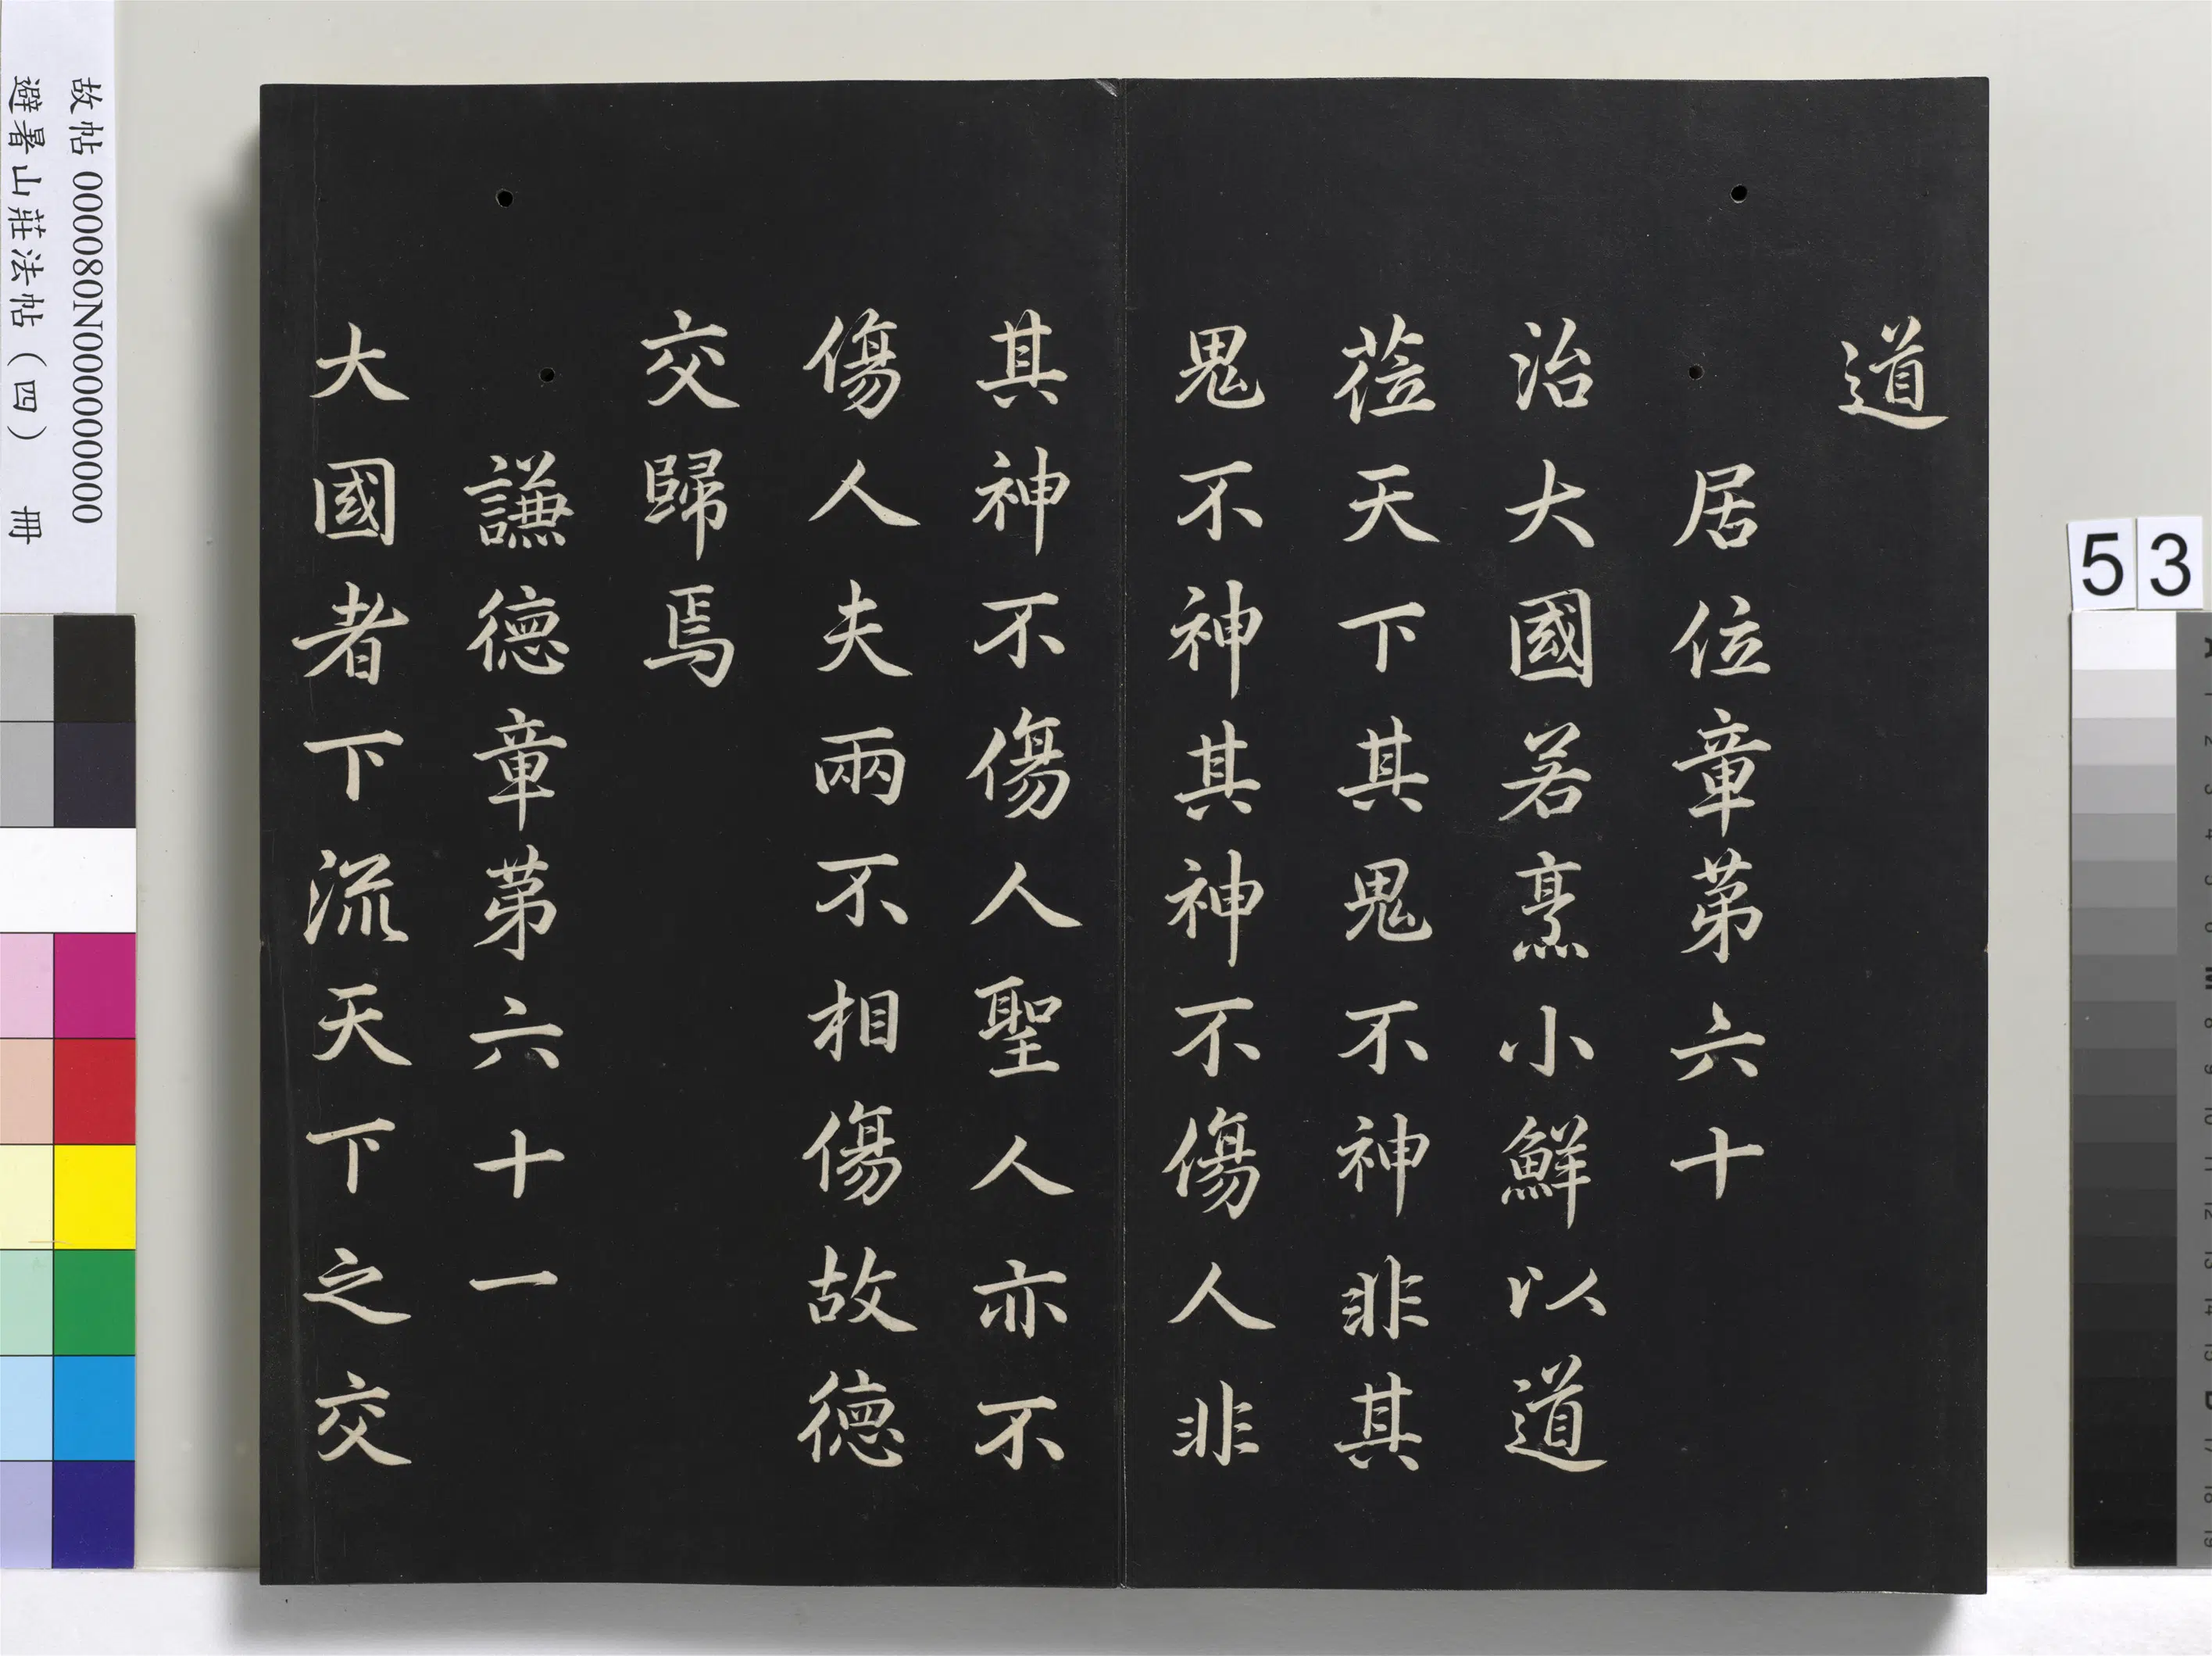 道
居位章第六十
治大國若烹小鮮以道
莅天下其鬼不神非其
鬼不神其神不傷人非
其神不傷人聖人亦不
傷人夫兩不相傷故德
交歸焉
謙德章第六十一
大國者下流天下之交
故帖 000080N000000000
避暑山莊法帖（四） 冊
53